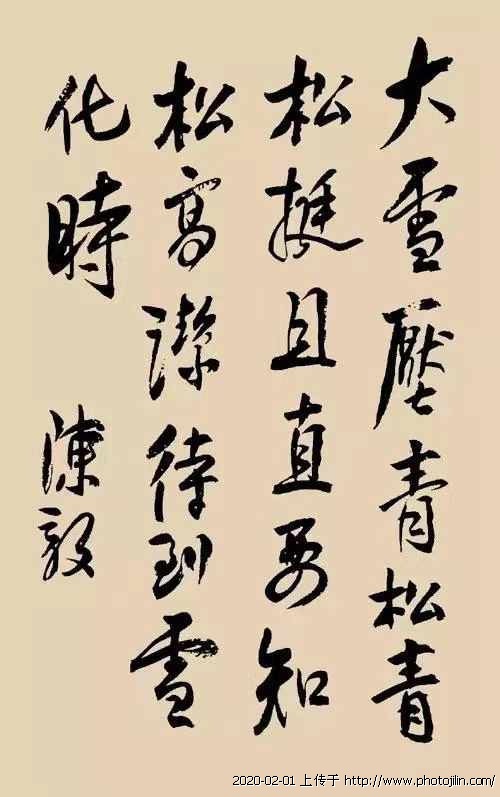 大雪壓青松青
松挺且直要知
松高潔待到雪
化時
陳毅
2020-02-01 上传于 http://www.photojilin.com/